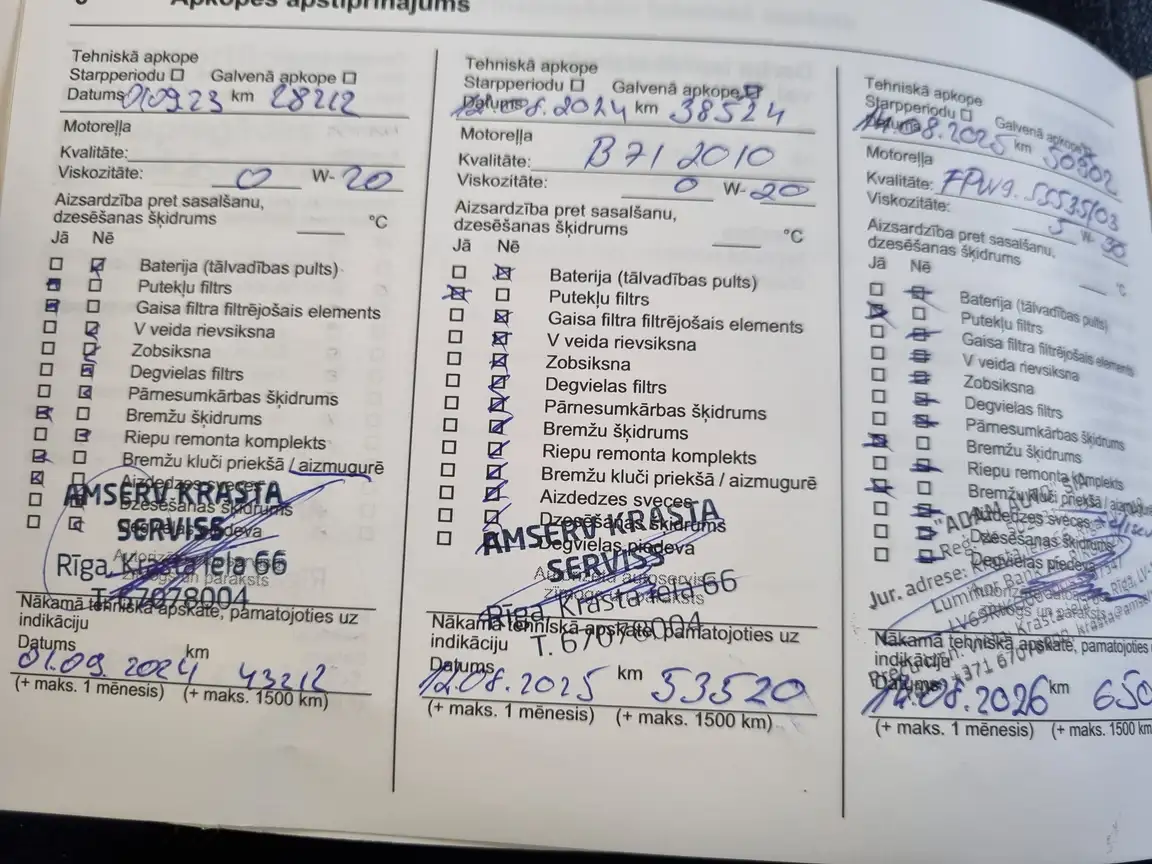 Apkopes apstiprinājums
Tehniskā apkope
Starpperiodu ☐ Galvenā apkope ☐
Datums 01.09.23 km 28212
Motoreļļa
Kvalitāte:
Viskozitāte: 0 W- 20
Aizsardzība pret sasalšanu,
dzesēšanas šķidrums °C
Jā Nē
Baterija (tālvadības pults)
Putekļu filtrs
Gaisa filtra filtrējošais elements
V veida rievsiksna
Zobsiksna
Degvielas filtrs
Pārnesumkārbas šķidrums
Bremžu šķidrums
Riepu remonta komplekts
Bremžu kluči priekšā / aizmugurē
Aizdedzes sveces
Dzesēšanas šķidrums
Degvielas piedeva
AMSERV KRASTA
SERVISS
Rīga, Krasta iela 66
T. 67078004
Nākamā tehniskā apskate, pamatojoties uz
indikāciju
Datums km
01.09.2024 43212
(+ maks. 1 mēnesis) (+ maks. 1500 km)
Tehniskā apkope
Starpperiodu ☐ Galvenā apkope
Datums 12.08.2024 km 38524
Motoreļļa
Kvalitāte: B71 2010
Viskozitāte: 0 W- 20
Aizsardzība pret sasalšanu,
dzesēšanas šķidrums °C
Jā Nē
Baterija (tālvadības pults)
Putekļu filtrs
Gaisa filtra filtrējošais elements
V veida rievsiksna
Zobsiksna
Degvielas filtrs
Pārnesumkārbas šķidrums
Bremžu šķidrums
Riepu remonta komplekts
Bremžu kluči priekšā / aizmugurē
Aizdedzes sveces
Dzesēšanas šķidrums
Degvielas piedeva
AMSERV KRASTA
SERVISS
Autorizēta autoservisa
zīmogs un paraksts
Rīga, Krasta iela 66
T. 67078004
Nākamā tehniskā apskate, pamatojoties uz
indikāciju
Datums km
12.08.2025 53520
(+ maks. 1 mēnesis) (+ maks. 1500 km)
Tehniskā apkope
Starpperiodu ☐ Galvenā apkope
Datums 14.08.2025 km 50502
Motoreļļa
Kvalitāte: FPW9.55535/03
Viskozitāte: 5 W- 30
Aizsardzība pret sasalšanu,
dzesēšanas šķidrums °C
Jā Nē
Baterija (tālvadības pults)
Putekļu filtrs
Gaisa filtra filtrējošais elements
V veida rievsiksna
Zobsiksna
Degvielas filtrs
Pārnesumkārbas šķidrums
Bremžu šķidrums
Riepu remonta komplekts
Bremžu kluči priekšā /
Aizdedzes sveces
Dzesēšanas šķidrums
Degvielas piedeva
Jur. adrese:
Nākamā tehniskā apskate, pamatojoties
indikāciju
Datums km
14.08.2026 650
(+ maks. 1 mēnesis) (+ maks. 1500 km